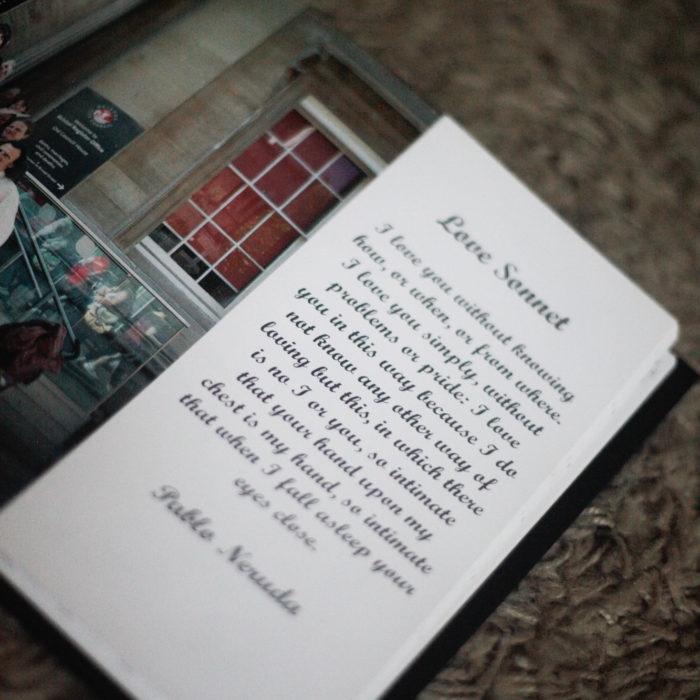 Welcome to
Bristol Register Office
Old Council House
Love Sonnet
I love you without knowing
how, or when, or from where.
I love you simply, without
problems or pride: I love
you in this way because I do
not know any other way of
loving but this, in which there
is no I or you, so intimate
that your hand upon my
chest is my hand, so intimate
that when I fall asleep your
eyes close.
Pablo Neruda